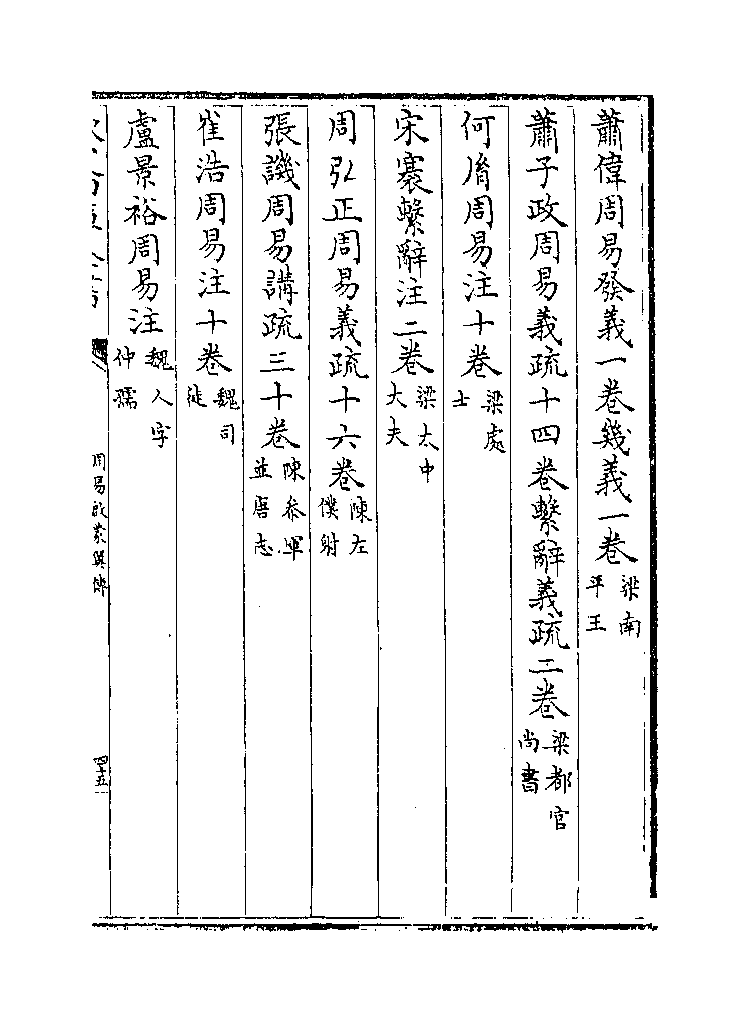 蕭偉周易發義一卷幾義一卷梁南平王
蕭子政周易義疏十四卷繫辭義疏二卷梁都官尚書
何胤周易注十卷梁處士
宋褰繫辭注二卷梁太中大夫
周弘正周易義疏十六卷陳左僕射
張譏周易講疏三十卷陳參軍並唐志
崔浩周易注十卷魏司徒
盧景裕周易注魏人字仲孺
周易啟蒙翼傳
四十五